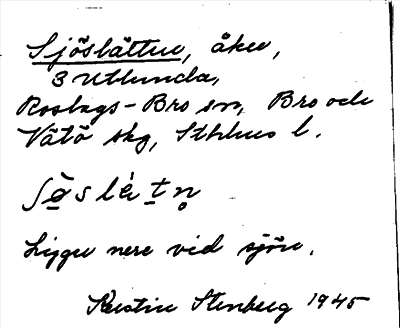 Sjöslätten, åker,
3 Utlunda,
Roslags-Bro sn, Bro och
Vätö skg, Sthlms l.
ʃø̀slètn̥
Ligger nere vid sjön.
Kerstin Stenberg 1945